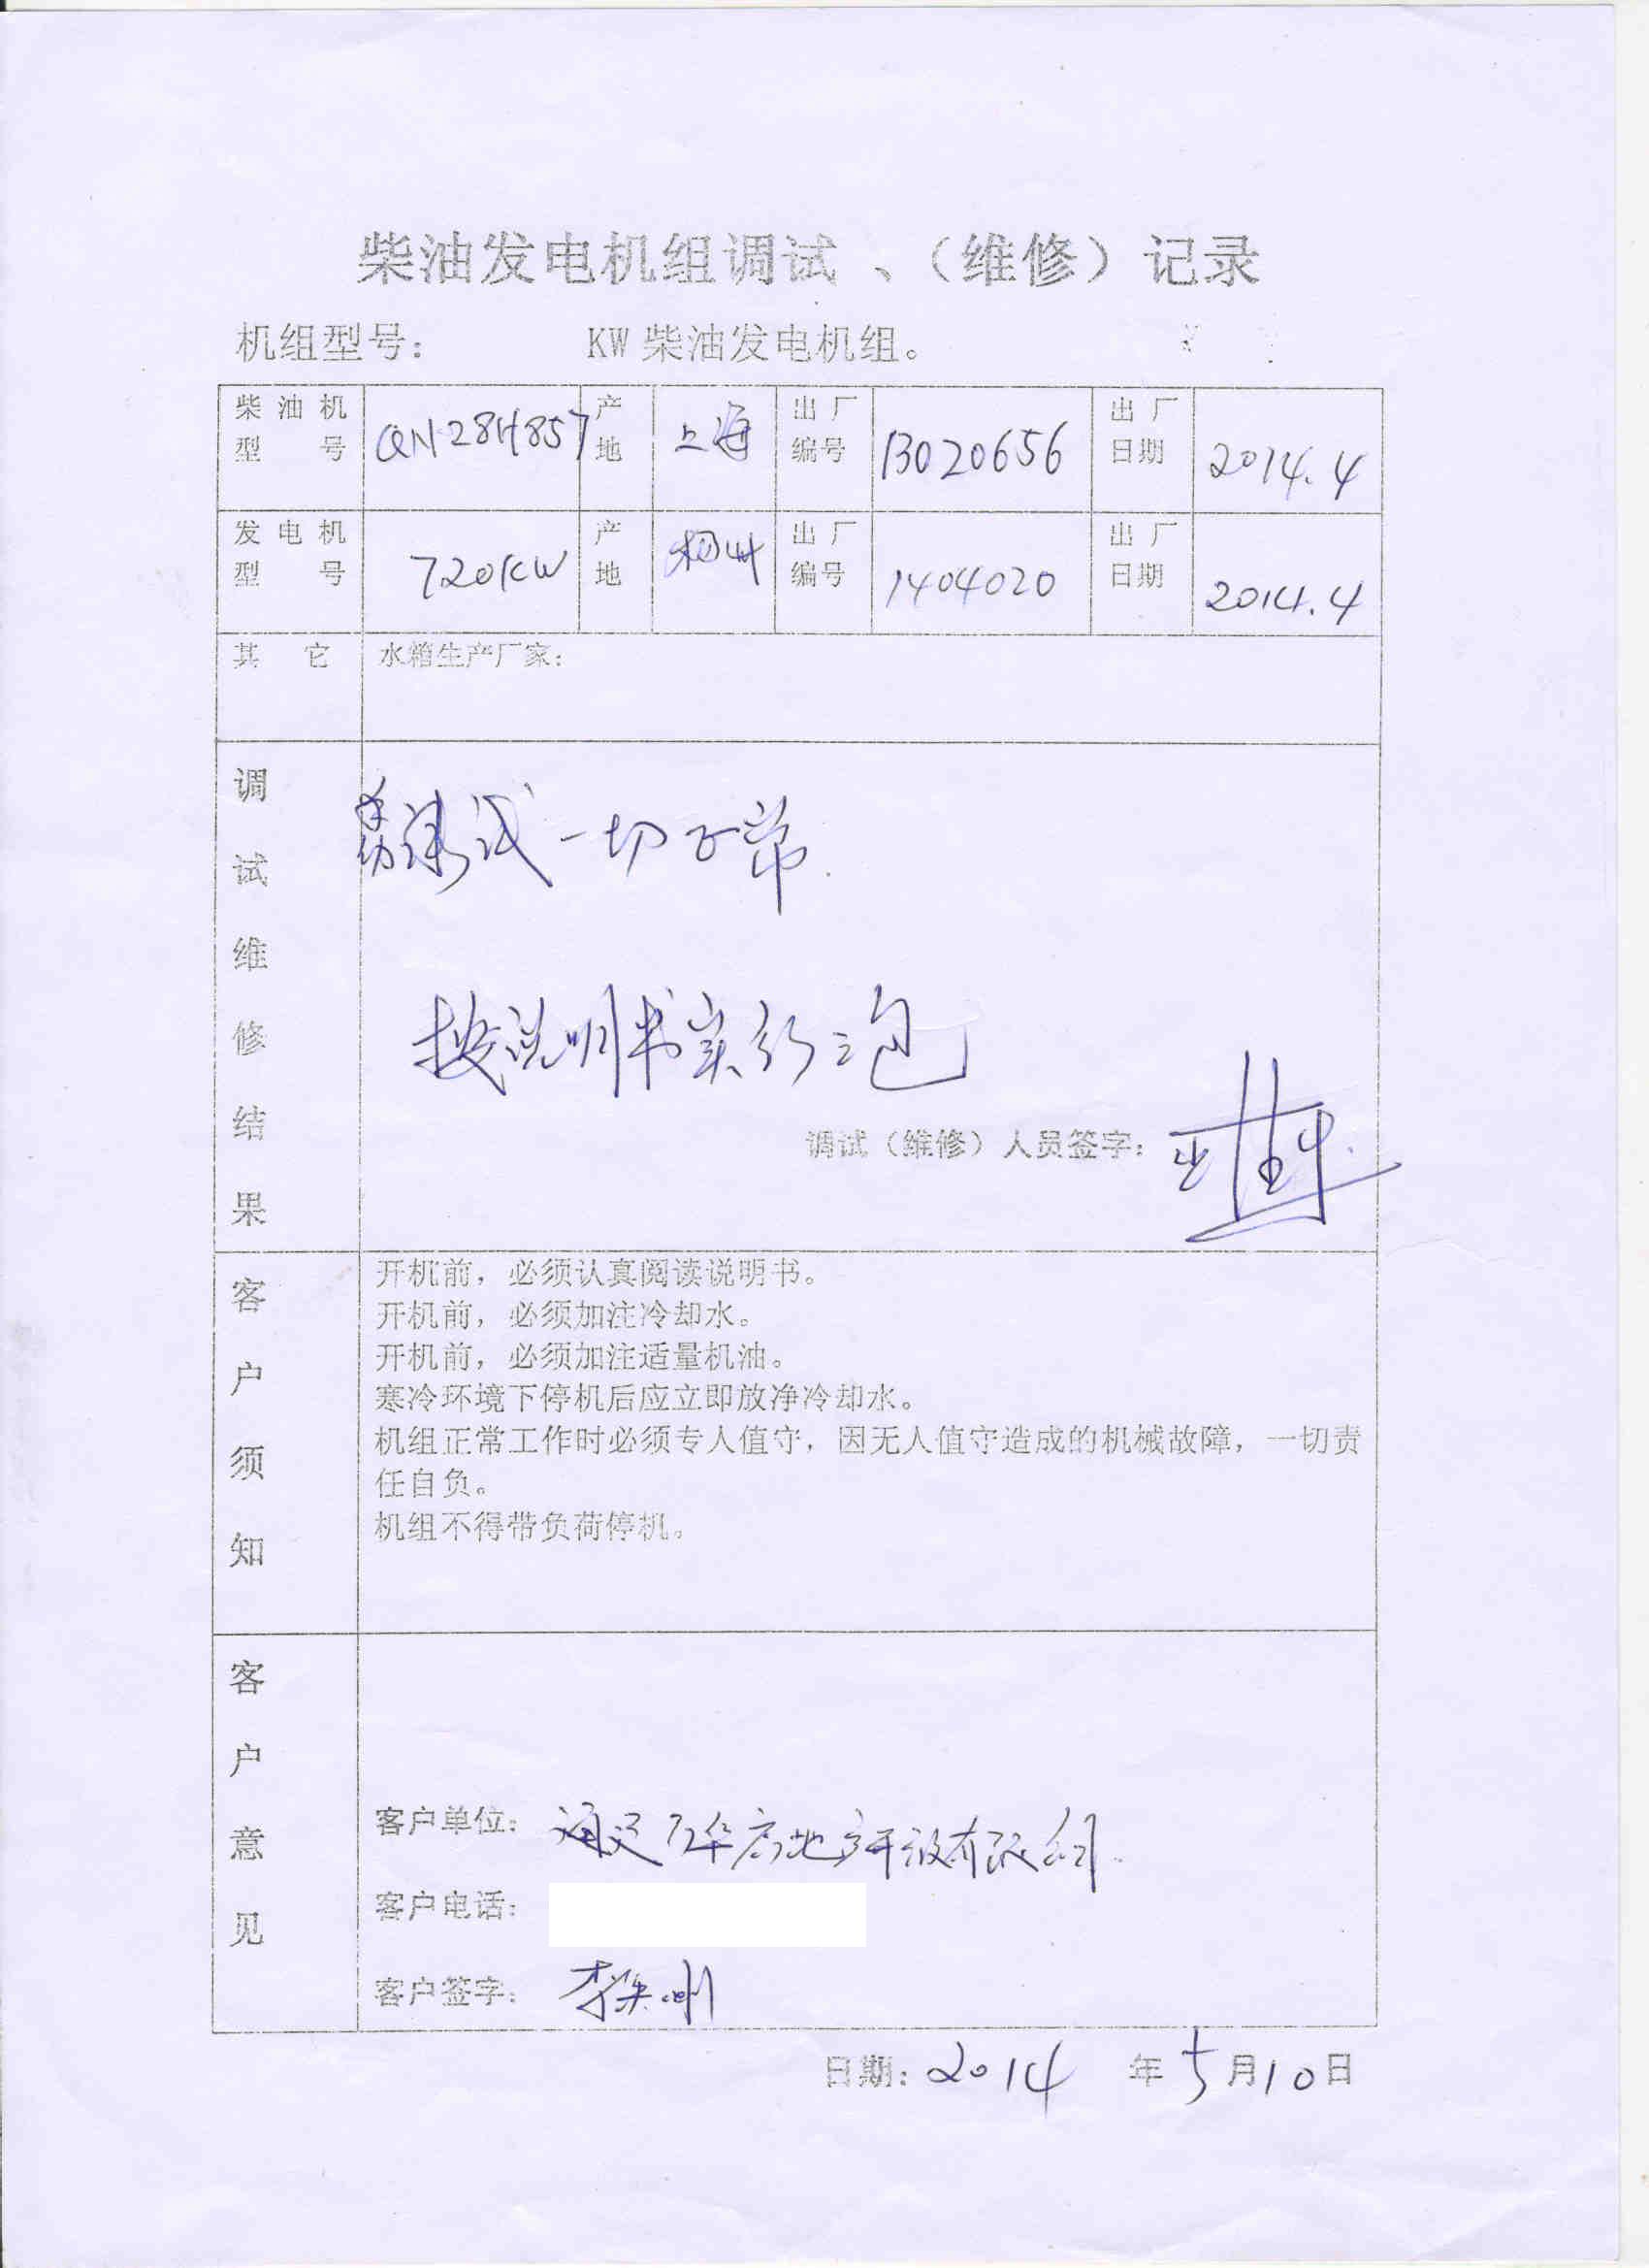 柴油发电机组调试 、（维修）记录
机组型号： KW 柴油发电机组。
柴油机型号 QN28H857 产地 上海 出厂编号 13020656 出厂日期 2014.4
发电机型号 720KW 产地 出厂编号 1404020 出厂日期 2014.4
其它 水箱生产厂家：
调试维修结果
试一切正常.
按说明书实行三包
调试（维修）人员签字：
客户须知
开机前，必须认真阅读说明书。
开机前，必须加注冷却水。
开机前，必须加注适量机油。
寒冷环境下停机后应立即放净冷却水。
机组正常工作时必须专人值守，因无人值守造成的机械故障，一切责
任自负。
机组不得带负荷停机。
客户意见
客户单位： 房地产开放有限公司.
客户电话：
客户签字： 李
日期：2014 年 5月10日